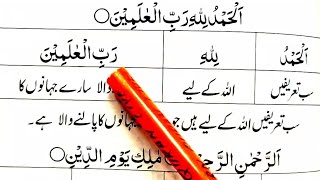 اَلْحَمْدُ لِلّٰهِ رَبِّ الْعٰلَمِيْنَ ○
اَلْحَمْدُ لِلّٰهِ رَبِّ الْعٰلَمِيْنَ
سب تعریفیں اللہ کے لیے والا سارے جہانوں کا
سب تعریفیں اللہ کے لیے ہیں جو جہانوں کا پالنے والا ہے۔
اَلرَّحْمٰنِ الرَّحِ مٰلِكِ يَوْمِ الدِّيْنِ ○